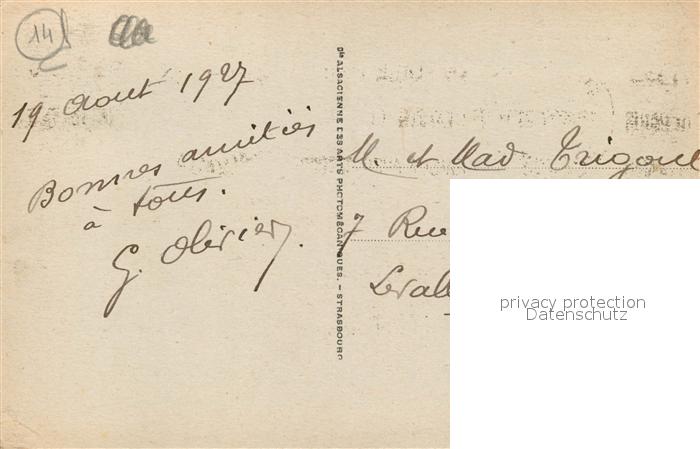 14
19 Août 1927
Bonnes amitiés
à tous.
G. Olivier.
Cie ALSACIENNE DES ARTS PHOTOMÉCANIQUES. – STRASBOURG
M. et Mad
7 Rue
Levall
privacy protection
Datenschutz